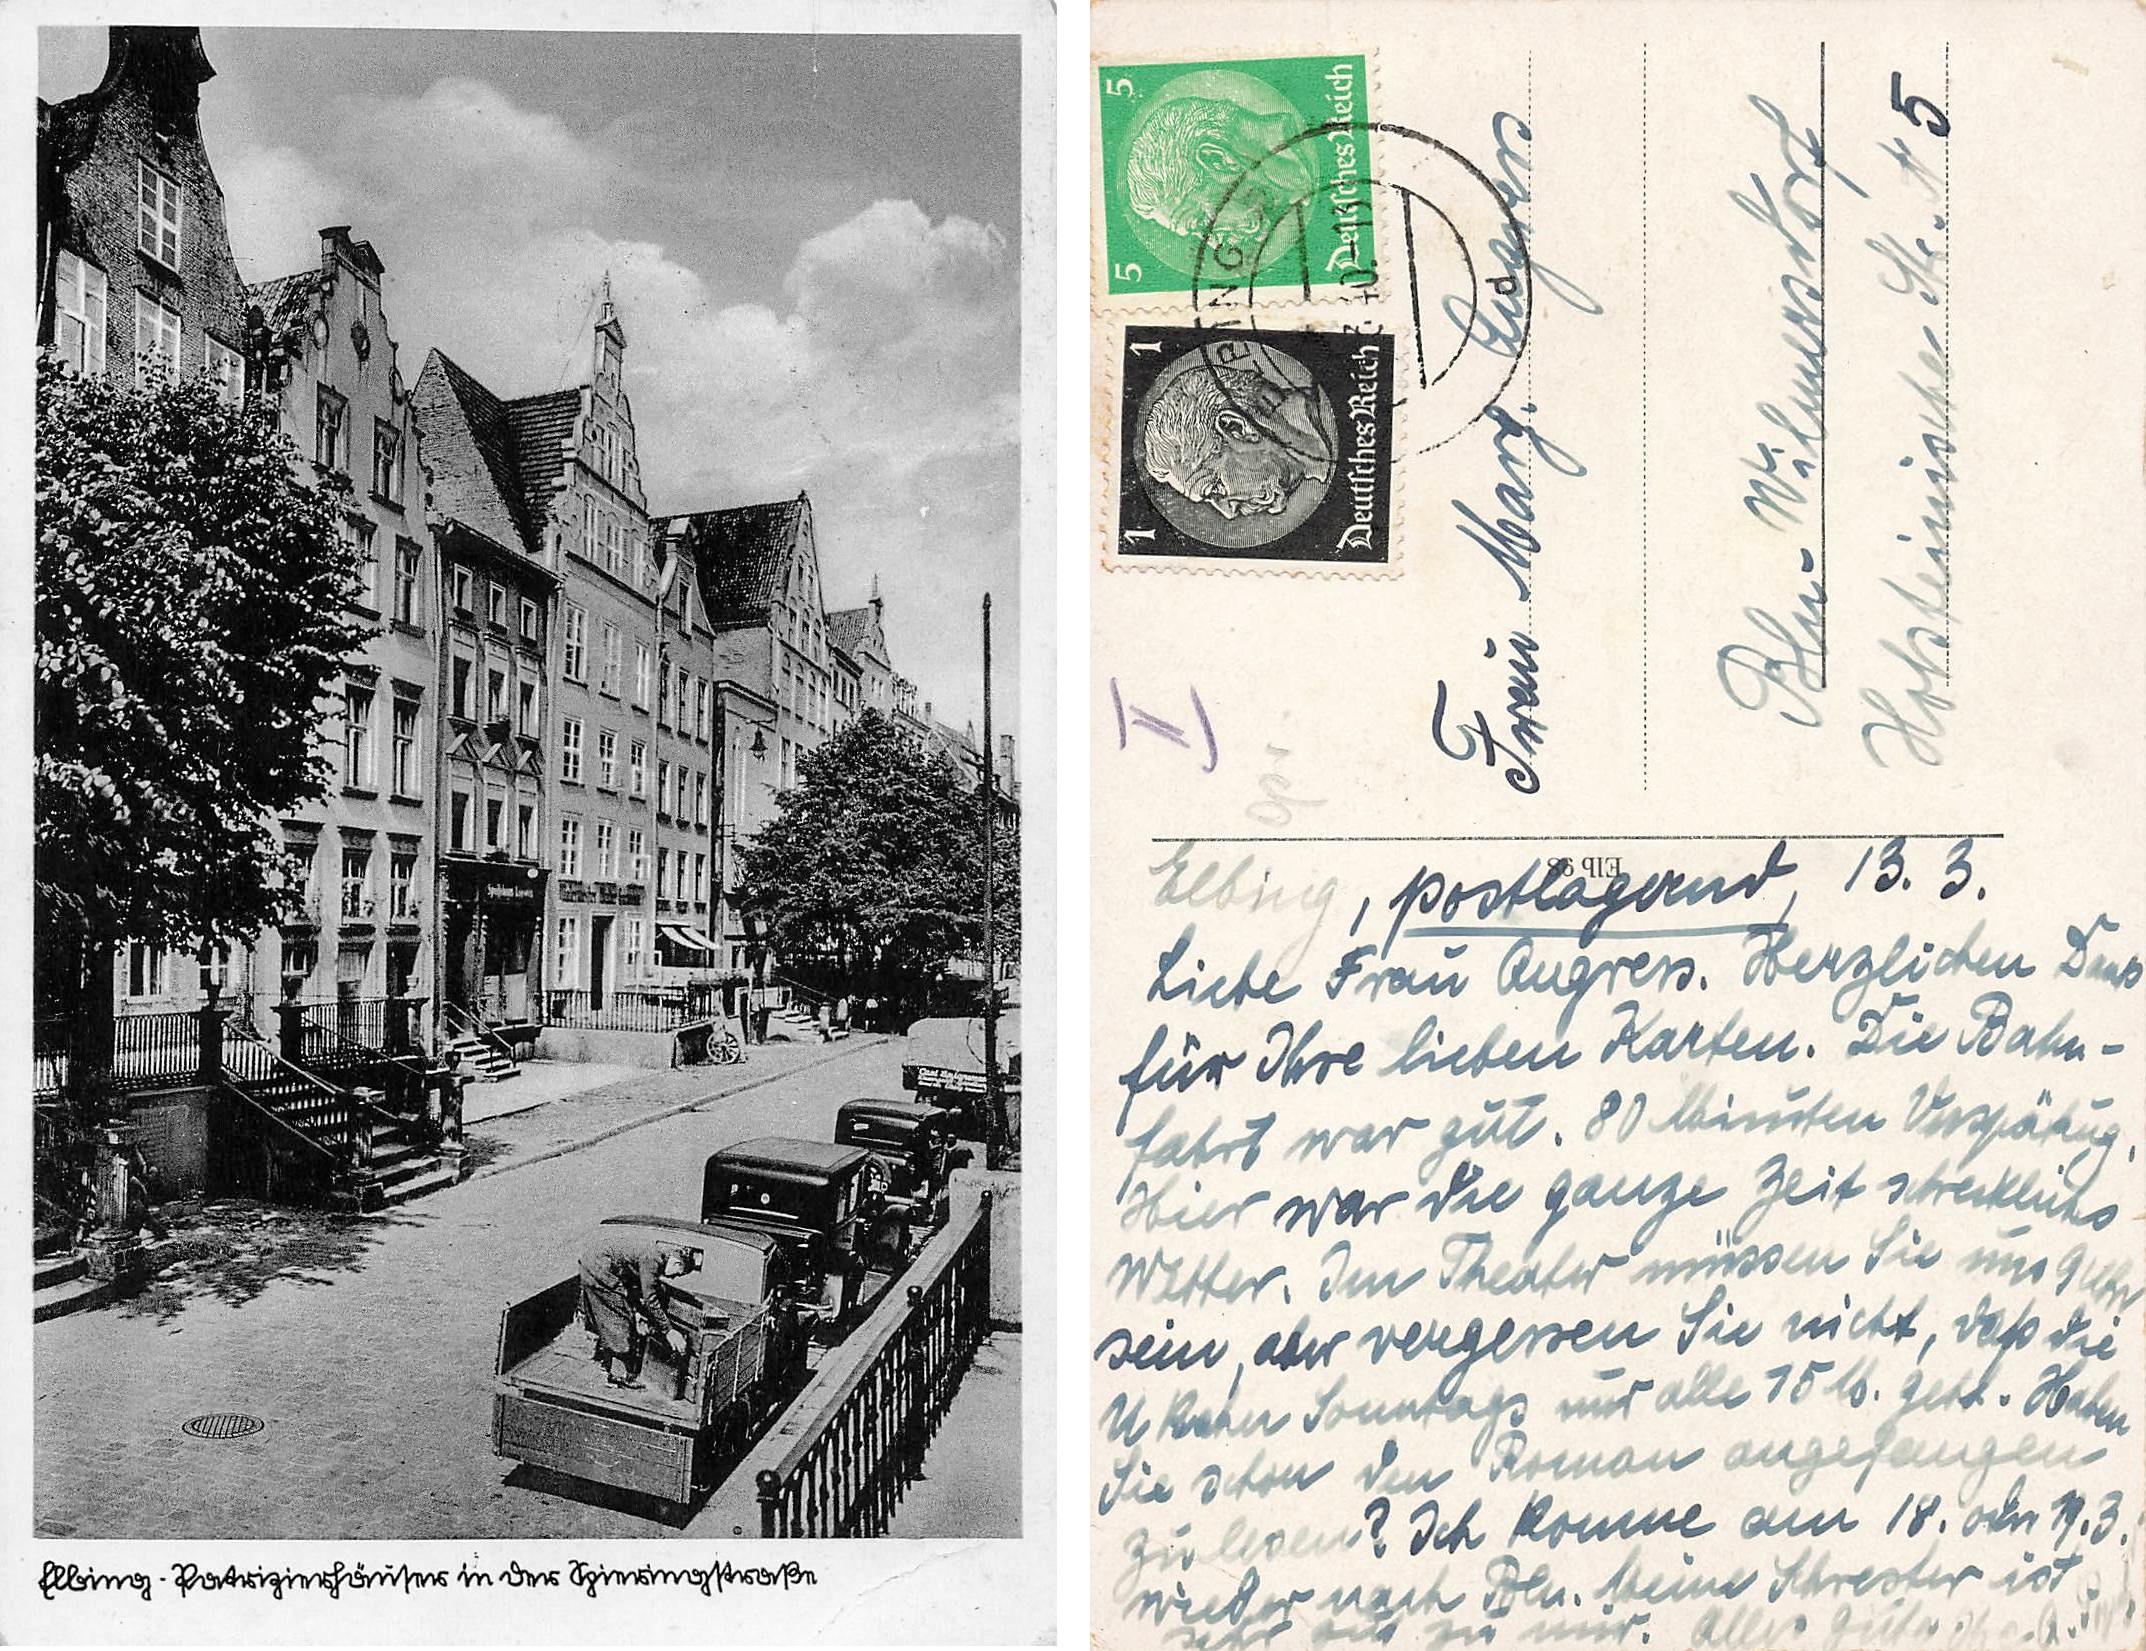 Elbing - Patrizierhäuser in der Spieringstraße
5 5
Deutsches Reich
1 1
Deutsches Reich
ELBING
d
II
Frau Marg. Augress
Bln-Wilmersdorf
Holsteinische Str. N 5
Elb 98
Elbing, postlagernd, 13. 3.
Liebe Frau Augress. Herzlichen Dank
für Ihre lieben Karten. Die Bahn-
fahrt war gut. 80 Minuten Verspätug.
Hier war die ganze Zeit schrecklichs
Wetter. Im Theater müssen Sie uns
sein, aber vergessen Sie nicht, daß die
U Bahn Sonntags nur alle 15 M. geht. Haben
Sie schon den Roman angefangen
zu lesen? Ich komme am 18. oder 19.3.
wieder nach Bln. Meine Schwester ist
sehr gut zu mir. Alles Gute